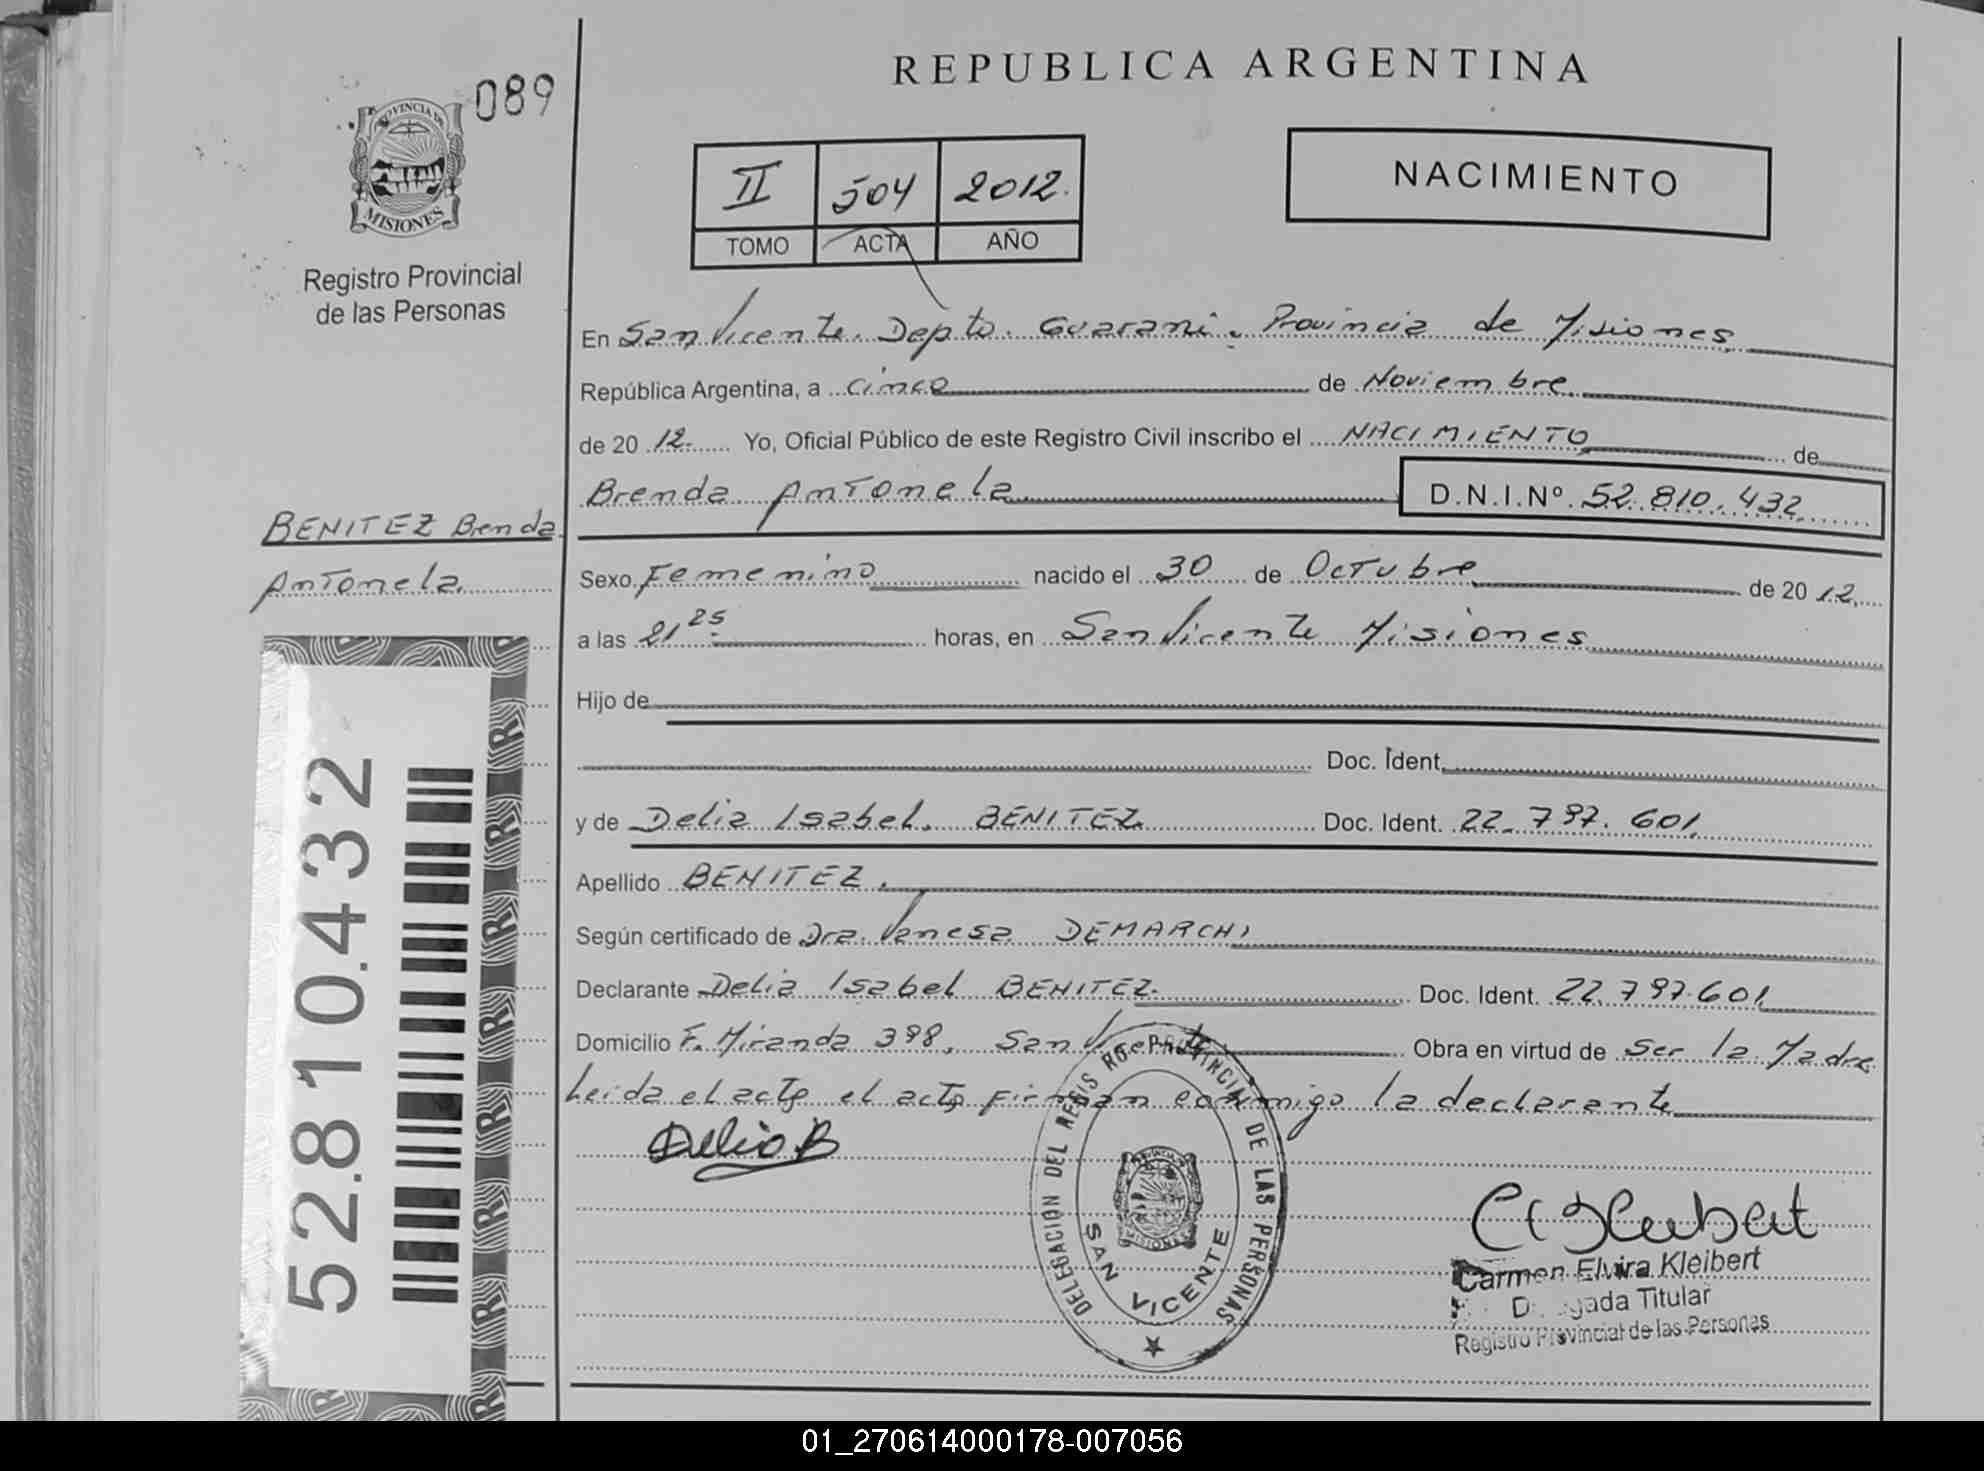 REPUBLICA ARGENTINA
089
PROVINCIA DE
MISIONES
Registro Provincial
de las Personas
II 504 2012.
TOMO ACTA AÑO
NACIMIENTO
En San Vicente. Depto. Guarani. Provincia de Misiones
República Argentina, a cinco de Noviembre
de 20 12. Yo, Oficial Público de este Registro Civil inscribo el NACIMIENTO de
Brenda Antonela
D.N.I.Nº 52.810.432
BENITEZ Brenda
Antonela
Sexo Femenino nacido el 30 de Octubre de 20 12
a las 21 25 horas, en San Vicente Misiones
Hijo de
Doc. Ident.
y de Delia Isabel. BENITEZ Doc. Ident. 22.797.601
Apellido BENITEZ.
Según certificado de Dra. Vanesa DEMARCHI
Declarante Delia Isabel BENITEZ. Doc. Ident. 22.797.601
Domicilio F. Miranda 398, San Vicente Obra en virtud de Ser la Madre
Leida el acta el acta firman conmigo la declarante
Delia B
52.810.432
DELEGACION DEL REGIS PROVINCIAL DE LAS PERSONAS
SAN VICENTE
Carmen Elvira Kleibert
Delegada Titular
Registro Provincial de las Personas
01_270614000178-007056